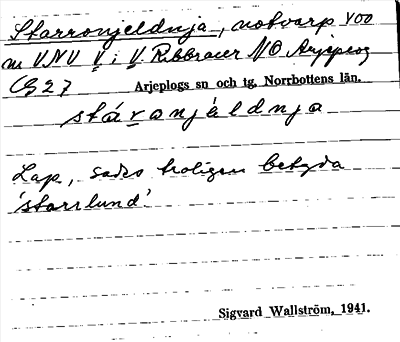 Starronjeldnja, notvarp 400
m VNV V i V. Ribbraur N O Arjeplog
C 27 Arjeplogs sn och tg, Norrbottens län.
stáronjèldnja
Lap, sades troligen betyda
'starrlund'.
Sigvard Wallström, 1941.